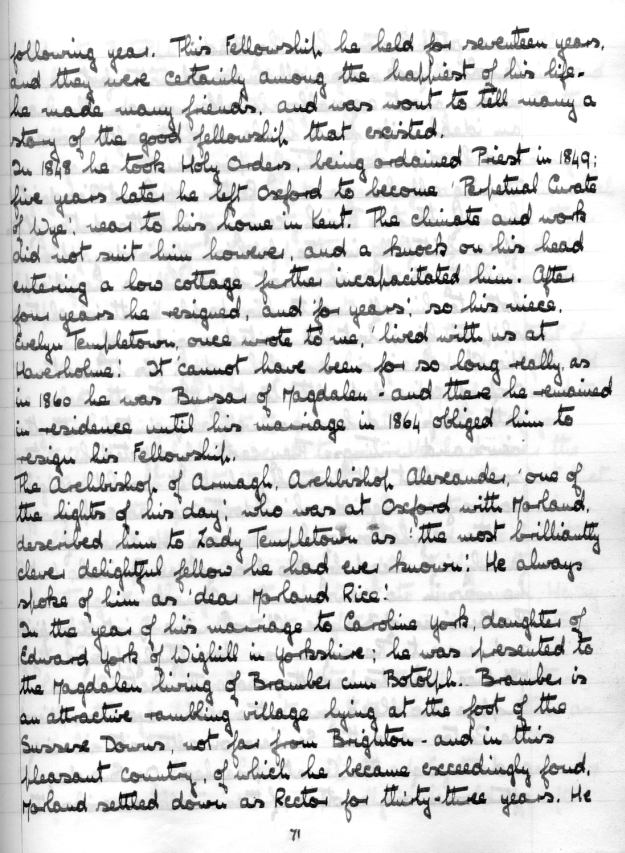 following year. This Fellowship he held for seventeen years,
and they were certainly among the happiest of his life.
he made many friends, and was wont to tell many a
story of the good fellowship that existed.
In 1848 he took Holy Orders, being ordained Priest in 1849;
five years later he left Oxford to become 'Perpetual Curate
of Wye', near to his home in Kent. The climate and work
did not suit him however, and a knock on his head
entering a low cottage further incapacitated him. After
four years he resigned, and 'for years', so his niece,
Evelyn Templetown, once wrote to me, 'lived with us at
Haverholme'. It cannot have been for so long really, as
in 1860 he was Bursar of Magdalen - and there he remained
in residence until his marriage in 1864 obliged him to
resign his Fellowship.
The Archbishop of Armagh, Archbishop Alexander, 'one of
the lights of his day', who was at Oxford with Morland,
described him to Lady Templetown as 'the most brilliantly
clever delightful fellow he had ever known'. He always
spoke of him as 'dear Morland Rice'.
In the year of his marriage to Caroline York, daughter of
Edward York of Wighill in Yorkshire; he was presented to
the Magdalen living of Bramber cum Botolph. Bramber is
an attractive rambling village lying at the foot of the
Sussex Downs, not far from Brighton - and in this
pleasant country, of which he became exceedingly fond,
Morland settled down as Rector for thirty-three years. He
71